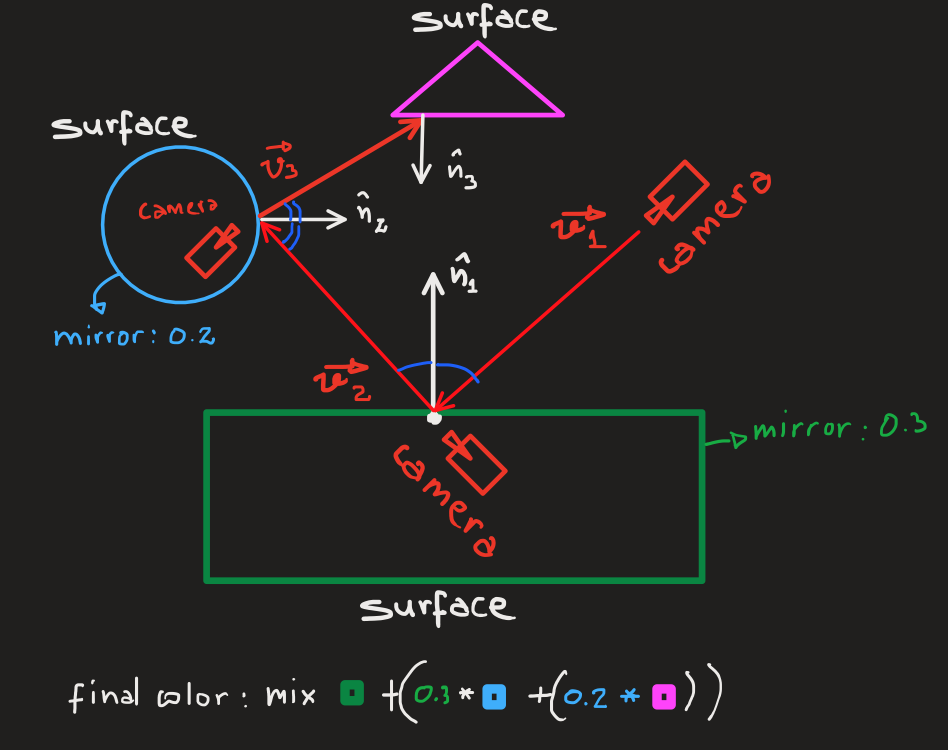 surface
surface
v⃗3
n̂3
camera
camera
n̂2
v⃗1
n̂1
mirror: 0.2
v⃗2
mirror: 0.3
camera
surface
final color: mix + (0.3 * + (0.2 * ))